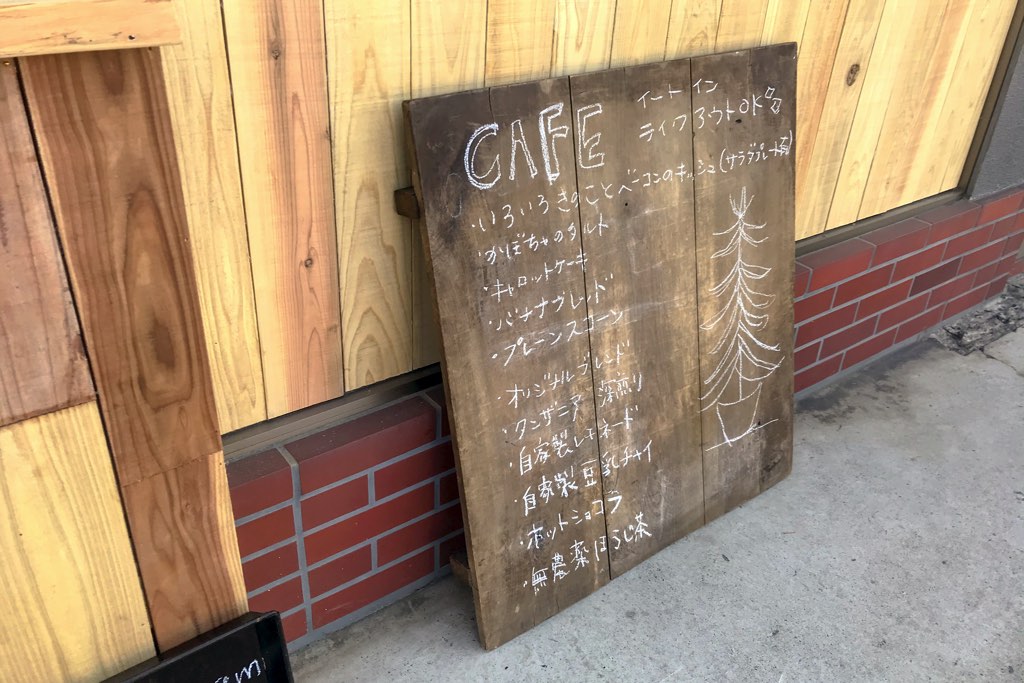 CAFE
イートイン
テイクアウトOK
・いろいろきのことベーコンのキッシュ(サラダプレート
・かぼちゃのタルト
・キャロットケーキ
・バナナブレッド
・プレーンスコーン
・オリジナルブレンド
・タンザニア 深煎り
・自家製レモネード
・自家製豆乳チャイ
・ホットショコラ
・無農薬ほうじ茶